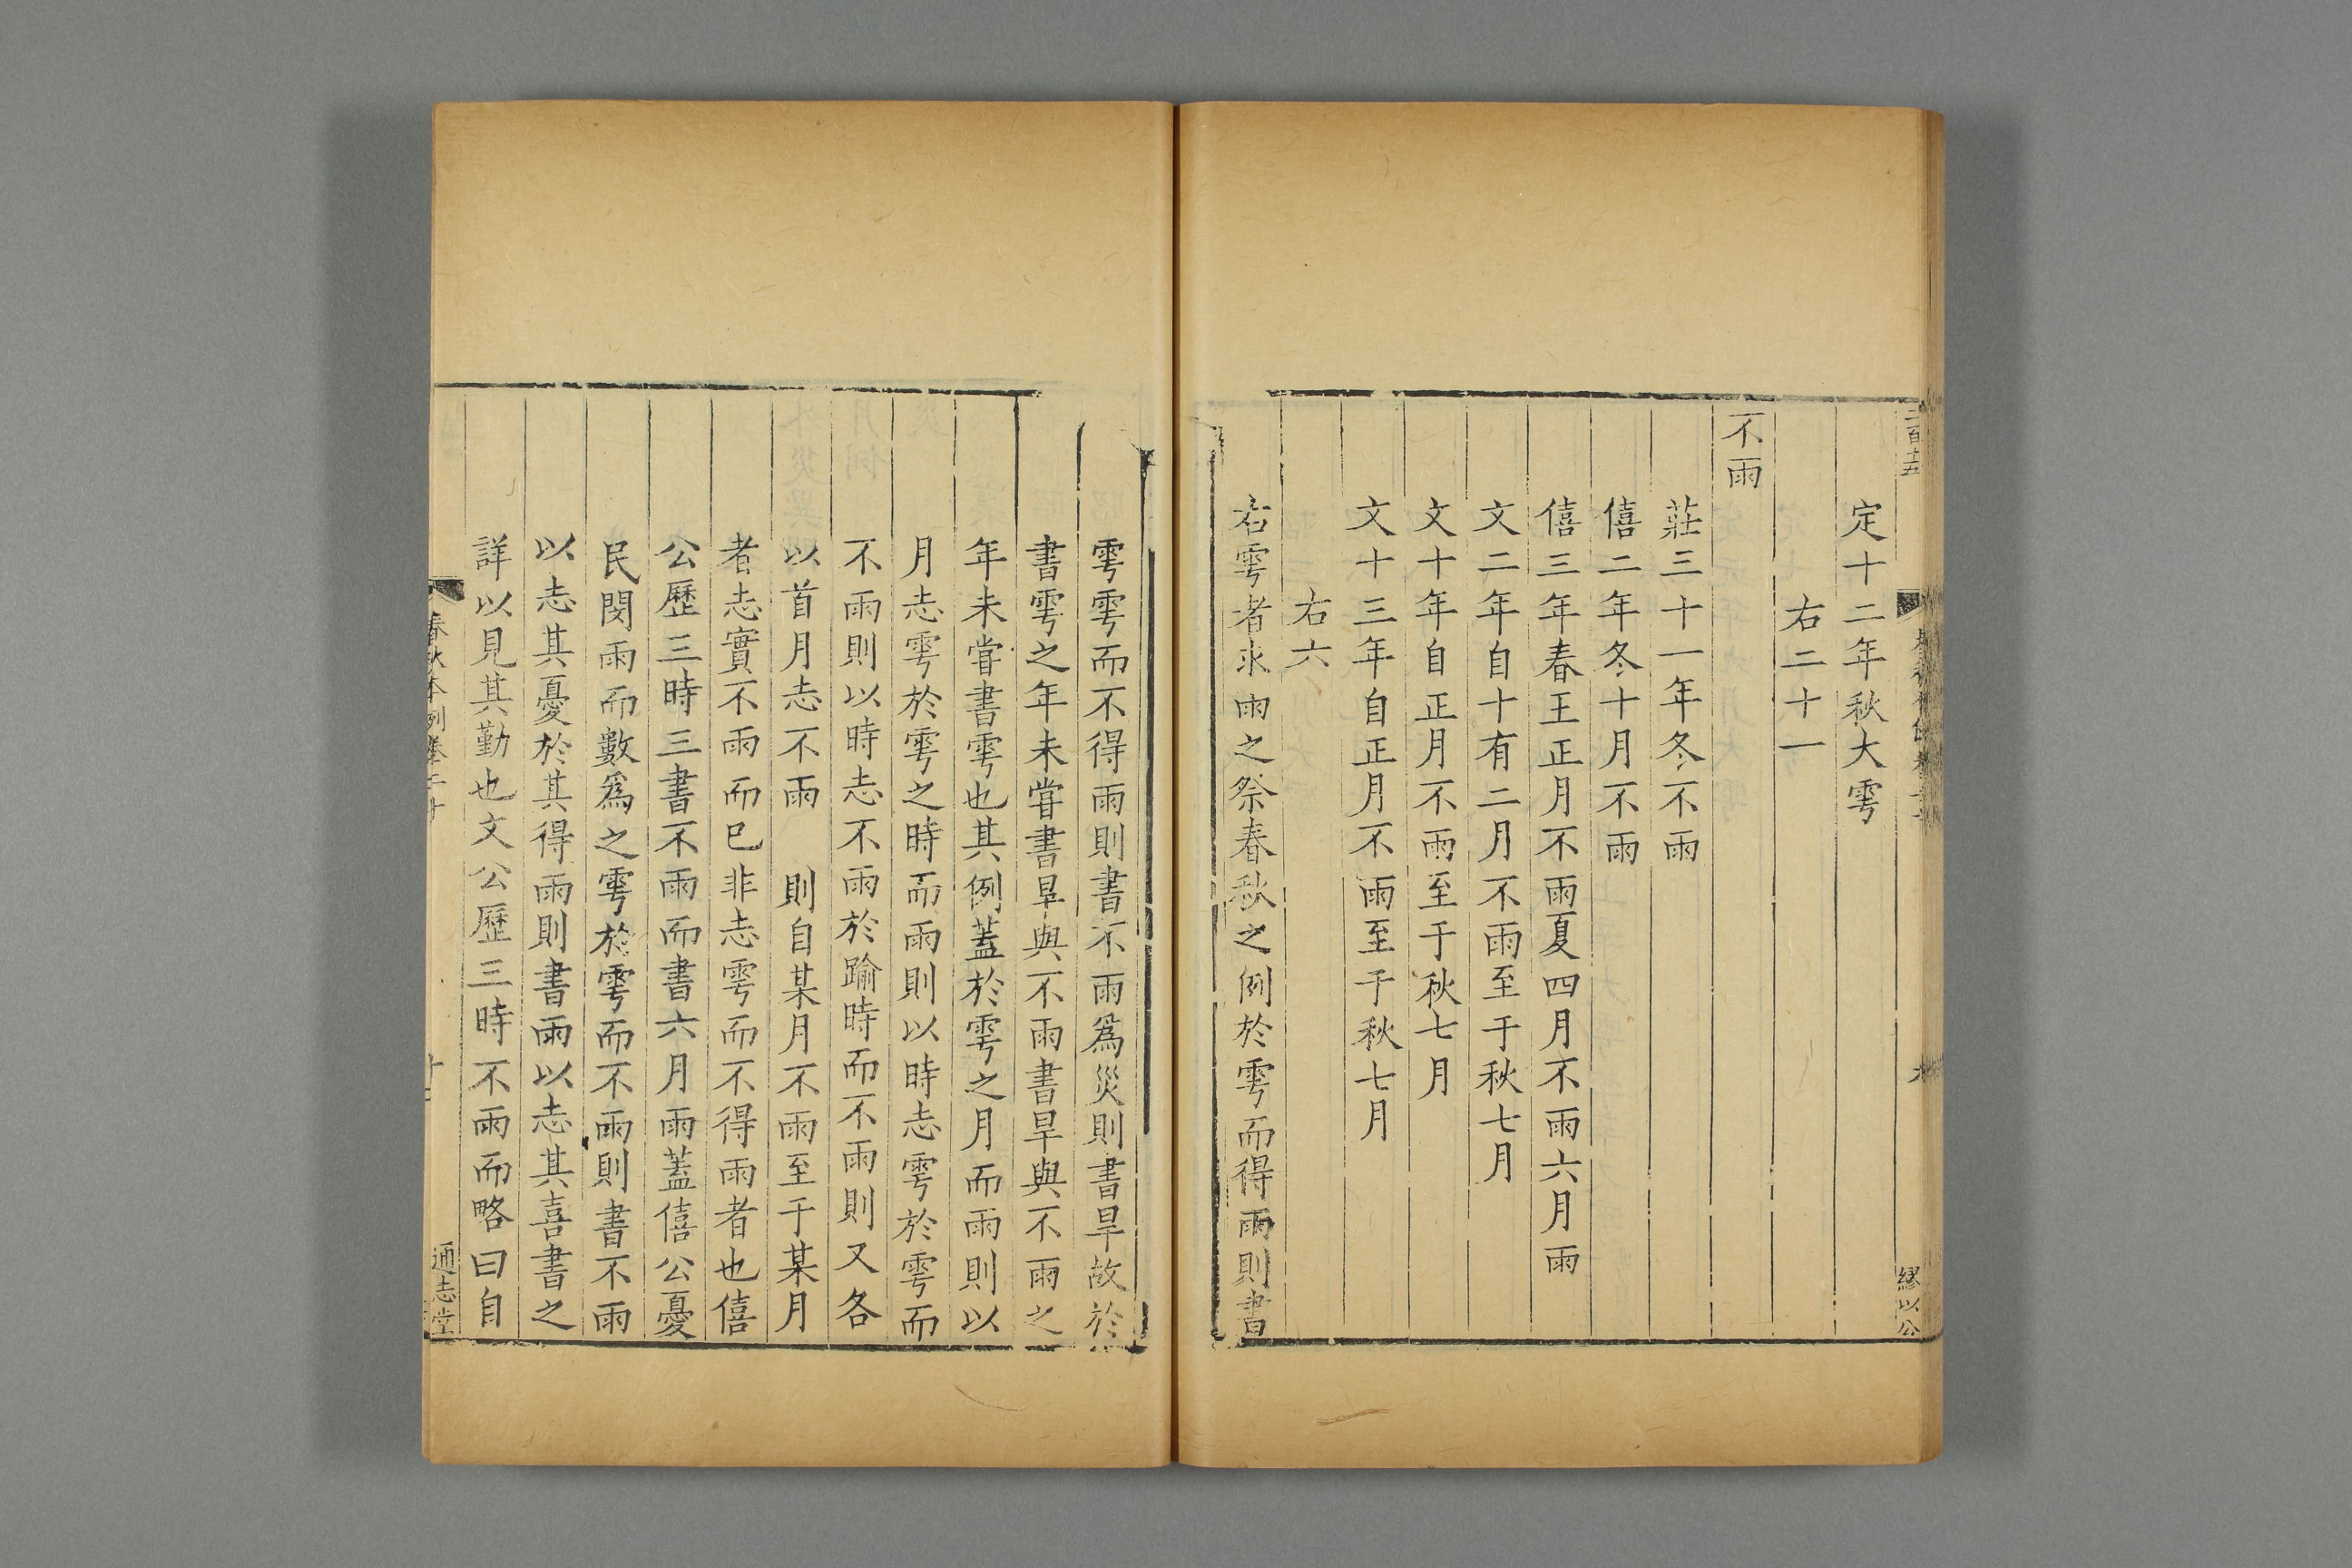 二百十五
繆以公
定十二年秋大雩
右二十一
不雨
莊三十一年冬不雨
僖二年冬十月不雨
僖三年春王正月不雨夏四月不雨六月雨
文二年自十有二月不雨至于秋七月
文十年自正月不雨至于秋七月
文十三年自正月不雨至于秋七月
右六
右雩者求雨之祭春秋之例於雩而得雨則書
雩雩而不得雨則書不雨爲災則書旱故於
書雩之年未甞書旱與不雨書旱與不雨之
年未甞書雩也其例蓋於雩之月而雨則以
月志雩於雩之時而雨則以時志雩於雩而
不雨則以時志不雨於踰時而不雨則又各
以首月志不雨 則自某月不雨至于某月
者志實不雨而已非志雩而不得雨者也僖
公歷三時三書不雨而書六月雨蓋僖公憂
民閔雨而數爲之雩於雩而不雨則書不雨
以志其憂於其得雨則書雨以志其喜書之
詳以見其勤也文公歷三時不雨而略曰自
春秋本例卷二十
通志堂